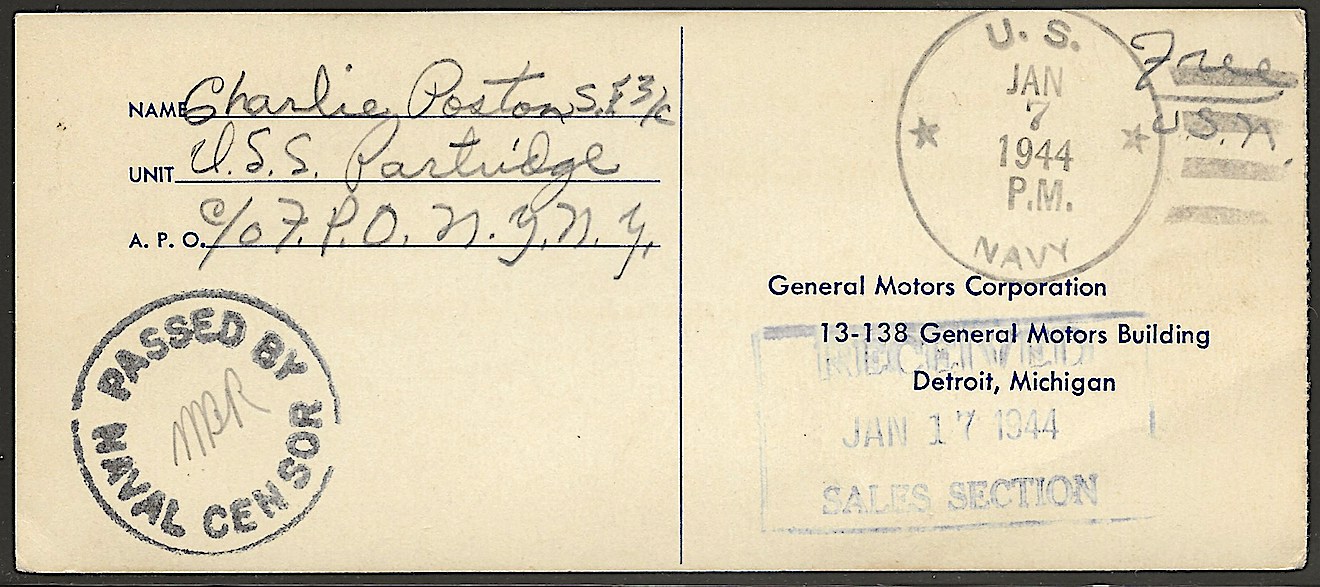 NAME Charlie Poston S.F. 3/c
UNIT U.S.S. Partridge
A. P. O. c/o F.P.O. N.Y. N.Y.
PASSED BY
NAVAL CENSOR
U. S.
JAN
7
1944
P.M.
NAVY
Free
U.S.N.
General Motors Corporation
13-138 General Motors Building
Detroit, Michigan
RECEIVED
JAN 17 1944
SALES SECTION